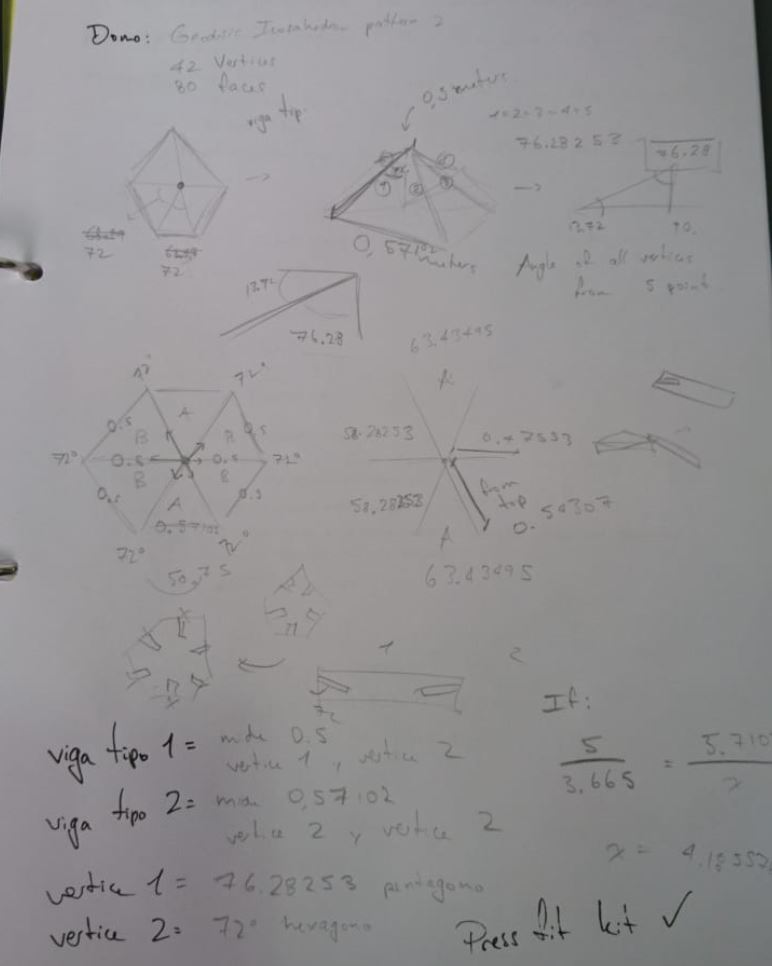 Domo: Geodesic Icosahedron pattern 2
42 Vertices
80 faces
viga tip.
0,5 meters
1=2=3=4=5
76.28253
76.28
72
72
0,57102 meters
13.72
90.
Angle of all vertices
from 5 point
13.72
76.28
63.43495
72°
72°
A
0.5
B
B
0.5
72°
0.5
0.5
72°
B
B
0.5
A
0.5
0.57102
72°
72°
50,75
A
58.28253
0.47553
58.28253
from top
0.54307
A
63.43495
1
2
72
If:
viga tipo 1= mide 0.5
vertice 1, vertice 2
5
3.665
=
5.710
x
viga tipo 2= mide 0,57102
vertice 2 y vertice 2
x = 4.18552
vertice 1= 76.28253 pentagono
vertice 2= 72° hexagono
Press fit kit ✓